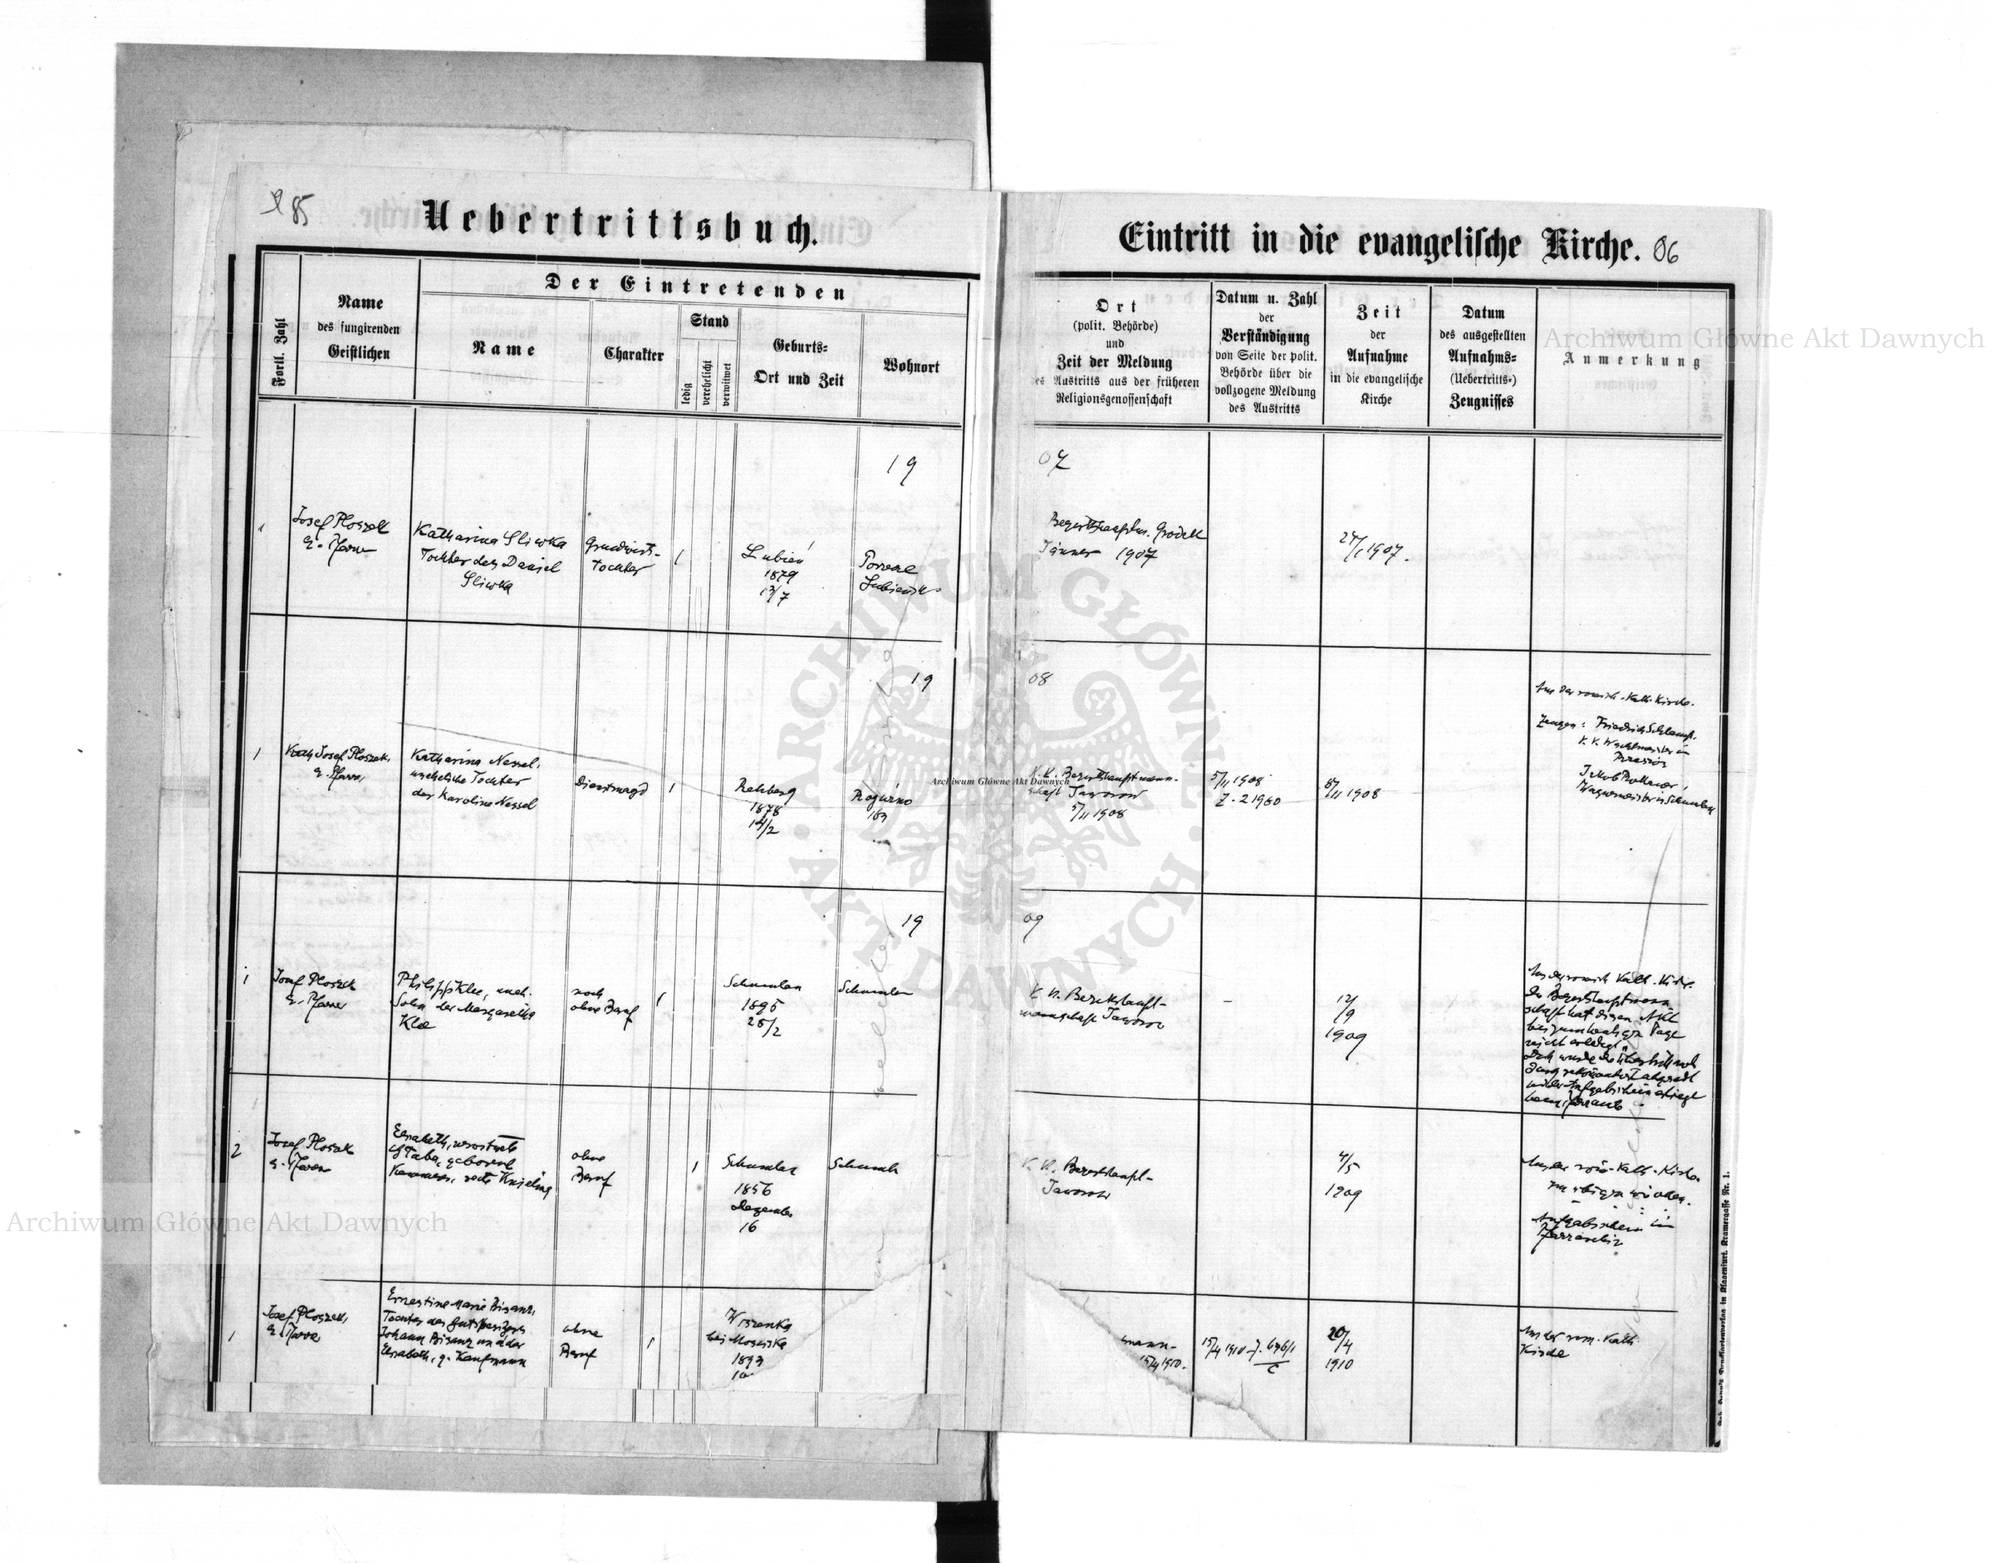 85
Uebertrittsbuch.
Fortl. Zahl
Name
des fungirenden
Geistlichen
Der Eintretenden
Name
Charakter
Stand
ledig
verehelicht
verwitwet
Geburts-
Ort und Zeit
Wohnort
19
1
Josef Ploszek
e. Pfarrer
Katharina Sliwka
Tochter des Daniel
Sliwka
Grundwirts-
tochter
1
Lubień
1879
13/7
19
1
Josef Ploszek,
e. Pfarrer,
Katharina Nessel,
uneheliche Tochter
der Karoline Nessel
Dienstmagd
1
Rehberg
1878
14/2
Rogużno
163
19
1
Josef Ploszek
e. Pfarrer
Philipp Klee, uneh.
Sohn der Margarethe
Klee
noch
ohne Beruf
1
Schumlau
1895
25/2
Schumlau
2
Josef Ploszek
e. Pfarrer
Elisabeth, verwitwete
geborene
ohne
Beruf
1
Schumlau
1856
Dezember
16
1
Josef Ploszek,
e. Pfarrer
Ernestine Marie Bisanz,
Tochter des Gutsbesitzers
Johann Bisanz und der
Elisabeth, g. Kaufmann
ohne
Beruf
1
bei Mosciska
1893
Eintritt in die evangelische Kirche.
86
Ort
(polit. Behörde)
und
Zeit der Meldung
des Austritts aus der früheren
Religionsgenossenschaft
Datum u. Zahl
der
Verständigung
von Seite der polit.
Behörde über die
vollzogene Meldung
des Austritts
Zeit
der
Aufnahme
in die evangelische
Kirche
Datum
des ausgestellten
Aufnahms-
(Uebertritts-)
Zeugnisses
Anmerkung
07
Bezirkshauptm. Grodek
Jänner 1907
27/1 1907.
08
K. K. Bezirkshauptmann-
schaft Jaworow
5/11 1908
5/11 1908
Z. 21960
8/11 1908
Aus der römisch-kath. Kirche.
Zeugen: Friedrich
K. K. Wachtmeister in
Jakob
09
K. K. Bezirkshaupt-
mannschaft Jaworow
-
12/
/9
1909
Aus der römisch kath. Kirche.
Die Bezirkshauptmann
schaft hat diesen Akt
bis zum heutigen Tage
nicht erledigt
K. K. Bezirkshaupt-
Jaworow
4/5
1909
Aus der röm. kath. Kirche.
im übrigen wie oben.
Aufgabschein im
mann-
15/4 1910.
15/4 1910
20/4
1910
Aus der röm. kath.
Kirche
Archiwum Główne Akt Dawnych
Archiwum Główne Akt Dawnych
Archiwum Główne Akt Dawnych
ARCHIWUM GŁÓWNE · AKT DAWNYCH ·